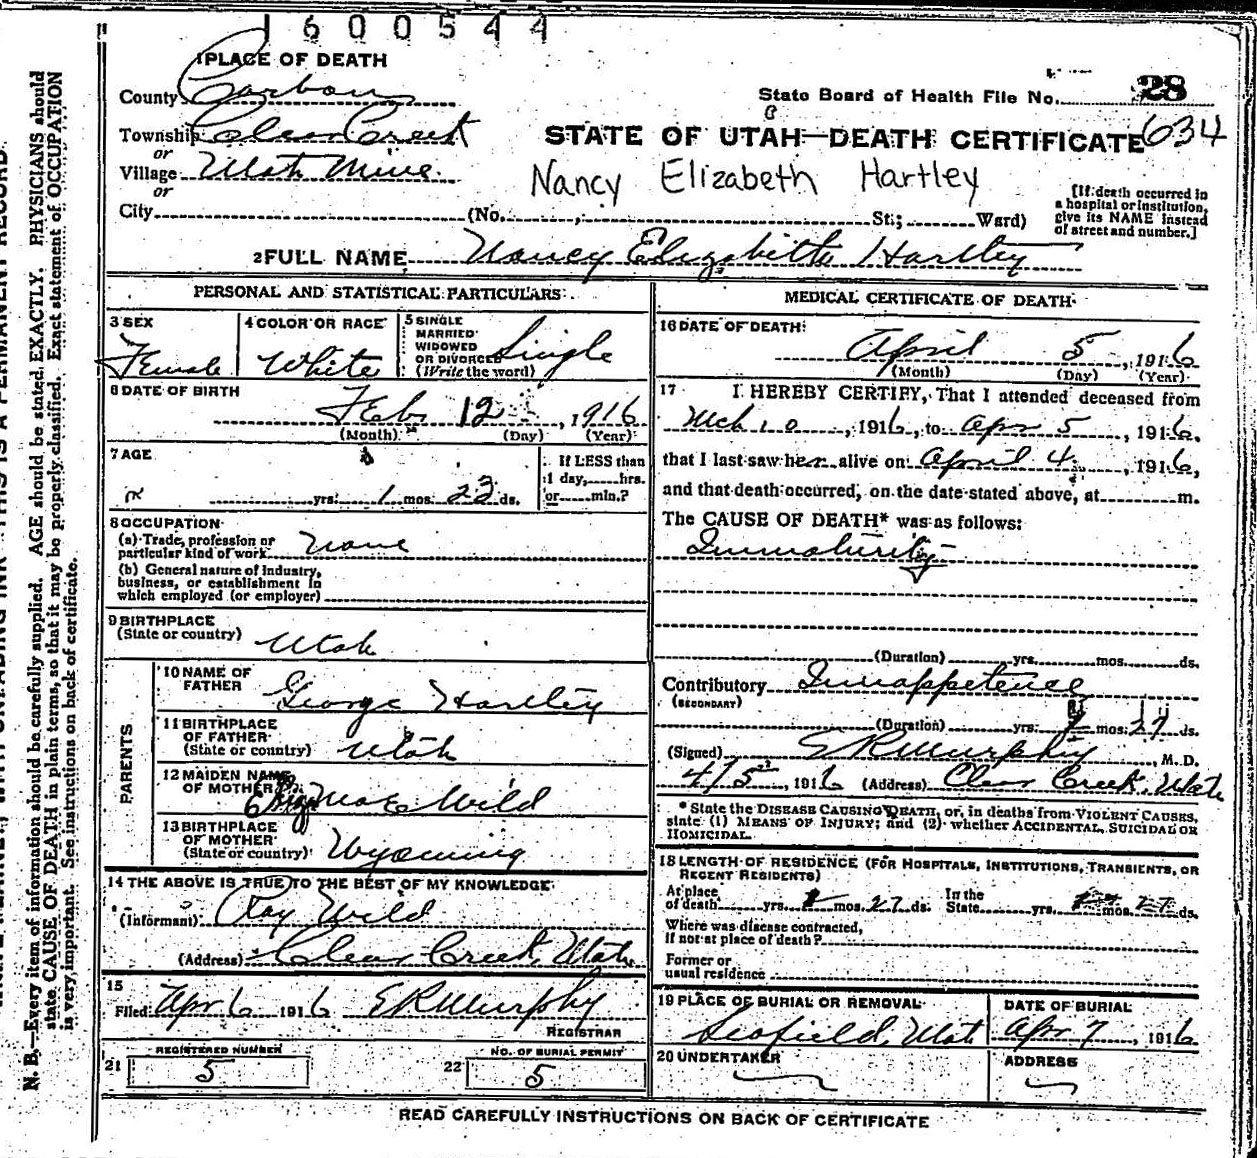 1600544
1 PLACE OF DEATH
County Carbon
Township Clear Creek
or
Village Utah Mine.
or
City (No. , St.; Ward)
State Board of Health File No. 28
634
STATE OF UTAH—DEATH CERTIFICATE
Nancy Elizabeth Hartley
[If death occurred in
a hospital or institution,
give its NAME instead
of street and number.]
2 FULL NAME Nancy Elizabeth Hartley
PERSONAL AND STATISTICAL PARTICULARS
3 SEX
Female
4 COLOR OR RACE
White
5 SINGLE
MARRIED
WIDOWED
OR DIVORCED
(Write the word)
Single
6 DATE OF BIRTH
Feb 12, 1916
(Month) (Day) (Year)
7 AGE
yrs. 1 mos. 23 ds.
If LESS than
1 day, hrs.
or min.?
8 OCCUPATION
(a) Trade, profession or
particular kind of work None
(b) General nature of industry,
business, or establishment in
which employed (or employer)
9 BIRTHPLACE
(State or country) Utah
PARENTS
10 NAME OF
FATHER George Hartley
11 BIRTHPLACE
OF FATHER
(State or country) Utah
12 MAIDEN NAME
OF MOTHER Mae Wild
13 BIRTHPLACE
OF MOTHER
(State or country) Wyoming
14 THE ABOVE IS TRUE TO THE BEST OF MY KNOWLEDGE
(Informant) Ray Wild
(Address) Clear Creek, Utah
15
Filed Apr 6 1916 E R Murphy
REGISTRAR
21 REGISTERED NUMBER
5
22 NO. OF BURIAL PERMIT
5
MEDICAL CERTIFICATE OF DEATH
16 DATE OF DEATH:
April 5, 1916
(Month) (Day) (Year)
17 I HEREBY CERTIFY, That I attended deceased from
Mch 10, 1916, to Apr 5, 1916,
that I last saw her alive on April 4, 1916,
and that death occurred, on the date stated above, at m.
The CAUSE OF DEATH* was as follows:
Immaturity
(Duration) yrs. mos. ds.
Contributory Innappetence
(SECONDARY)
(Duration) yrs. mos. 27 ds.
(Signed) E R Murphy, M. D.
4/5, 1916 (Address) Clear Creek, Utah
* State the DISEASE CAUSING DEATH, or, in deaths from VIOLENT CAUSES,
state (1) MEANS OF INJURY; and (2) whether ACCIDENTAL, SUICIDAL OR
HOMICIDAL.
18 LENGTH OF RESIDENCE (FOR HOSPITALS, INSTITUTIONS, TRANSIENTS, OR
RECENT RESIDENTS)
At place
of death yrs. mos. 27 ds.
In the
State yrs. mos. 27 ds.
Where was disease contracted,
if not at place of death?
Former or
usual residence
19 PLACE OF BURIAL OR REMOVAL
Scofield, Utah
DATE OF BURIAL
Apr 7, 1916
20 UNDERTAKER
ADDRESS
READ CAREFULLY INSTRUCTIONS ON BACK OF CERTIFICATE
THIS IS A PERMANENT RECORD
N. B.—Every item of information should be carefully supplied. AGE should be stated EXACTLY. PHYSICIANS should
state CAUSE OF DEATH in plain terms, so that it may be properly classified. Exact statement of OCCUPATION
is very important. See instructions on back of certificate.